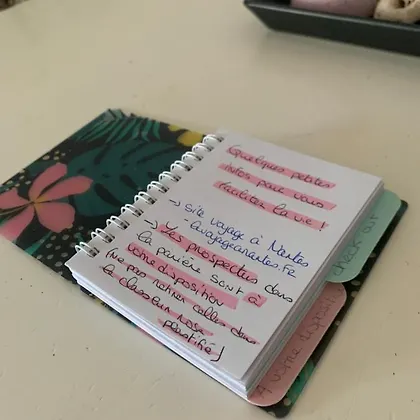 Quelques petites
infos pour vous
faciliter la vie !
→ Site voyage à Nantes
levoyageanantes.fr
→ Les prospectus dans
la panière sont à
votre disposition
(ne pas retirer celles dans
le classeur rose
plastifié)
check out
A votre disposit